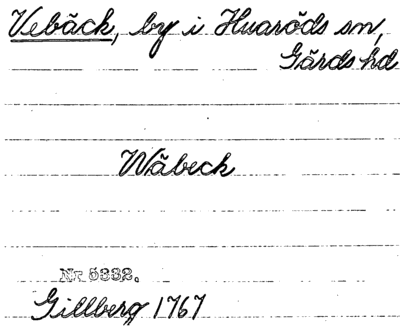 Vebäck, by i Huaröds sn,
Gärds hd
Wäbeck
Nr 5332.
Gillberg 1767